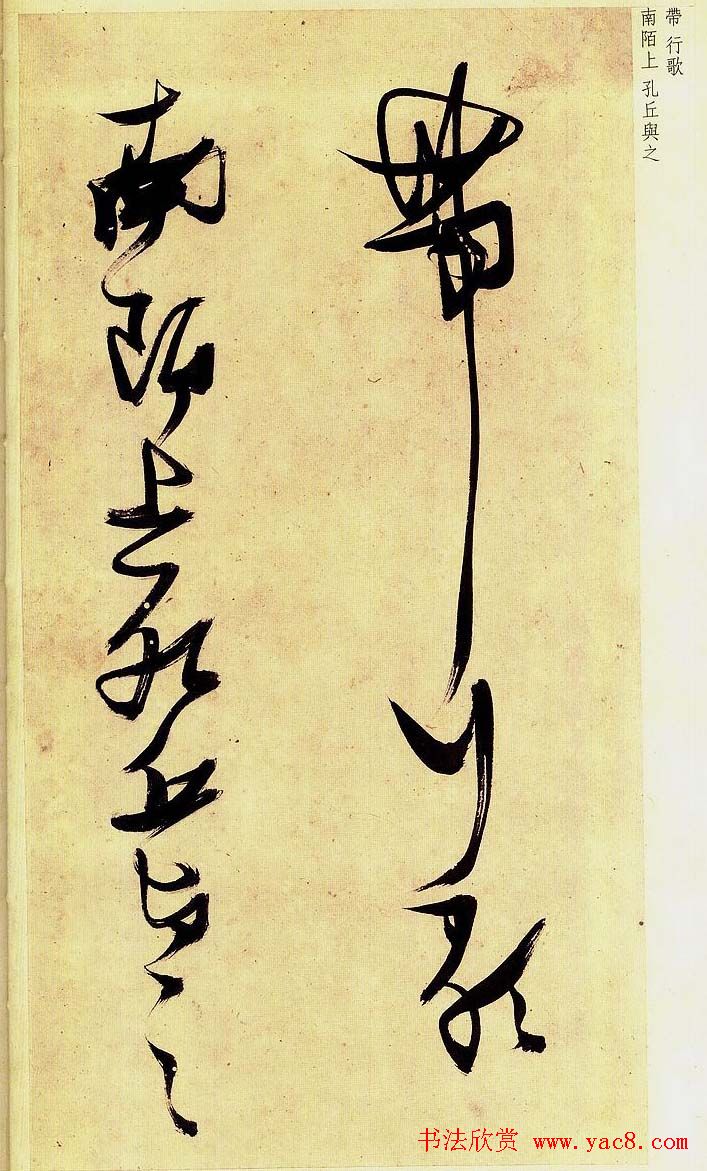 帶 行歌
南陌上 孔丘與之
帶行歌
南陌上孔丘與之
书法欣赏 www.yac8.com